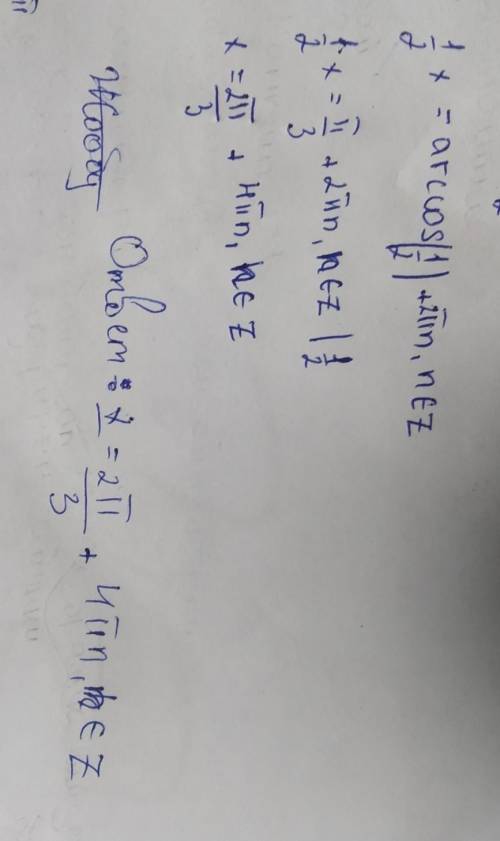 1/2 x = arccos(1/2) + 2πn, n∈Z
1/2 x = π/3 + 2πn, n∈Z | 1/2
x = 2π/3 + 4πn, n∈Z
Ответ: x = 2π/3 + 4πn, n∈Z